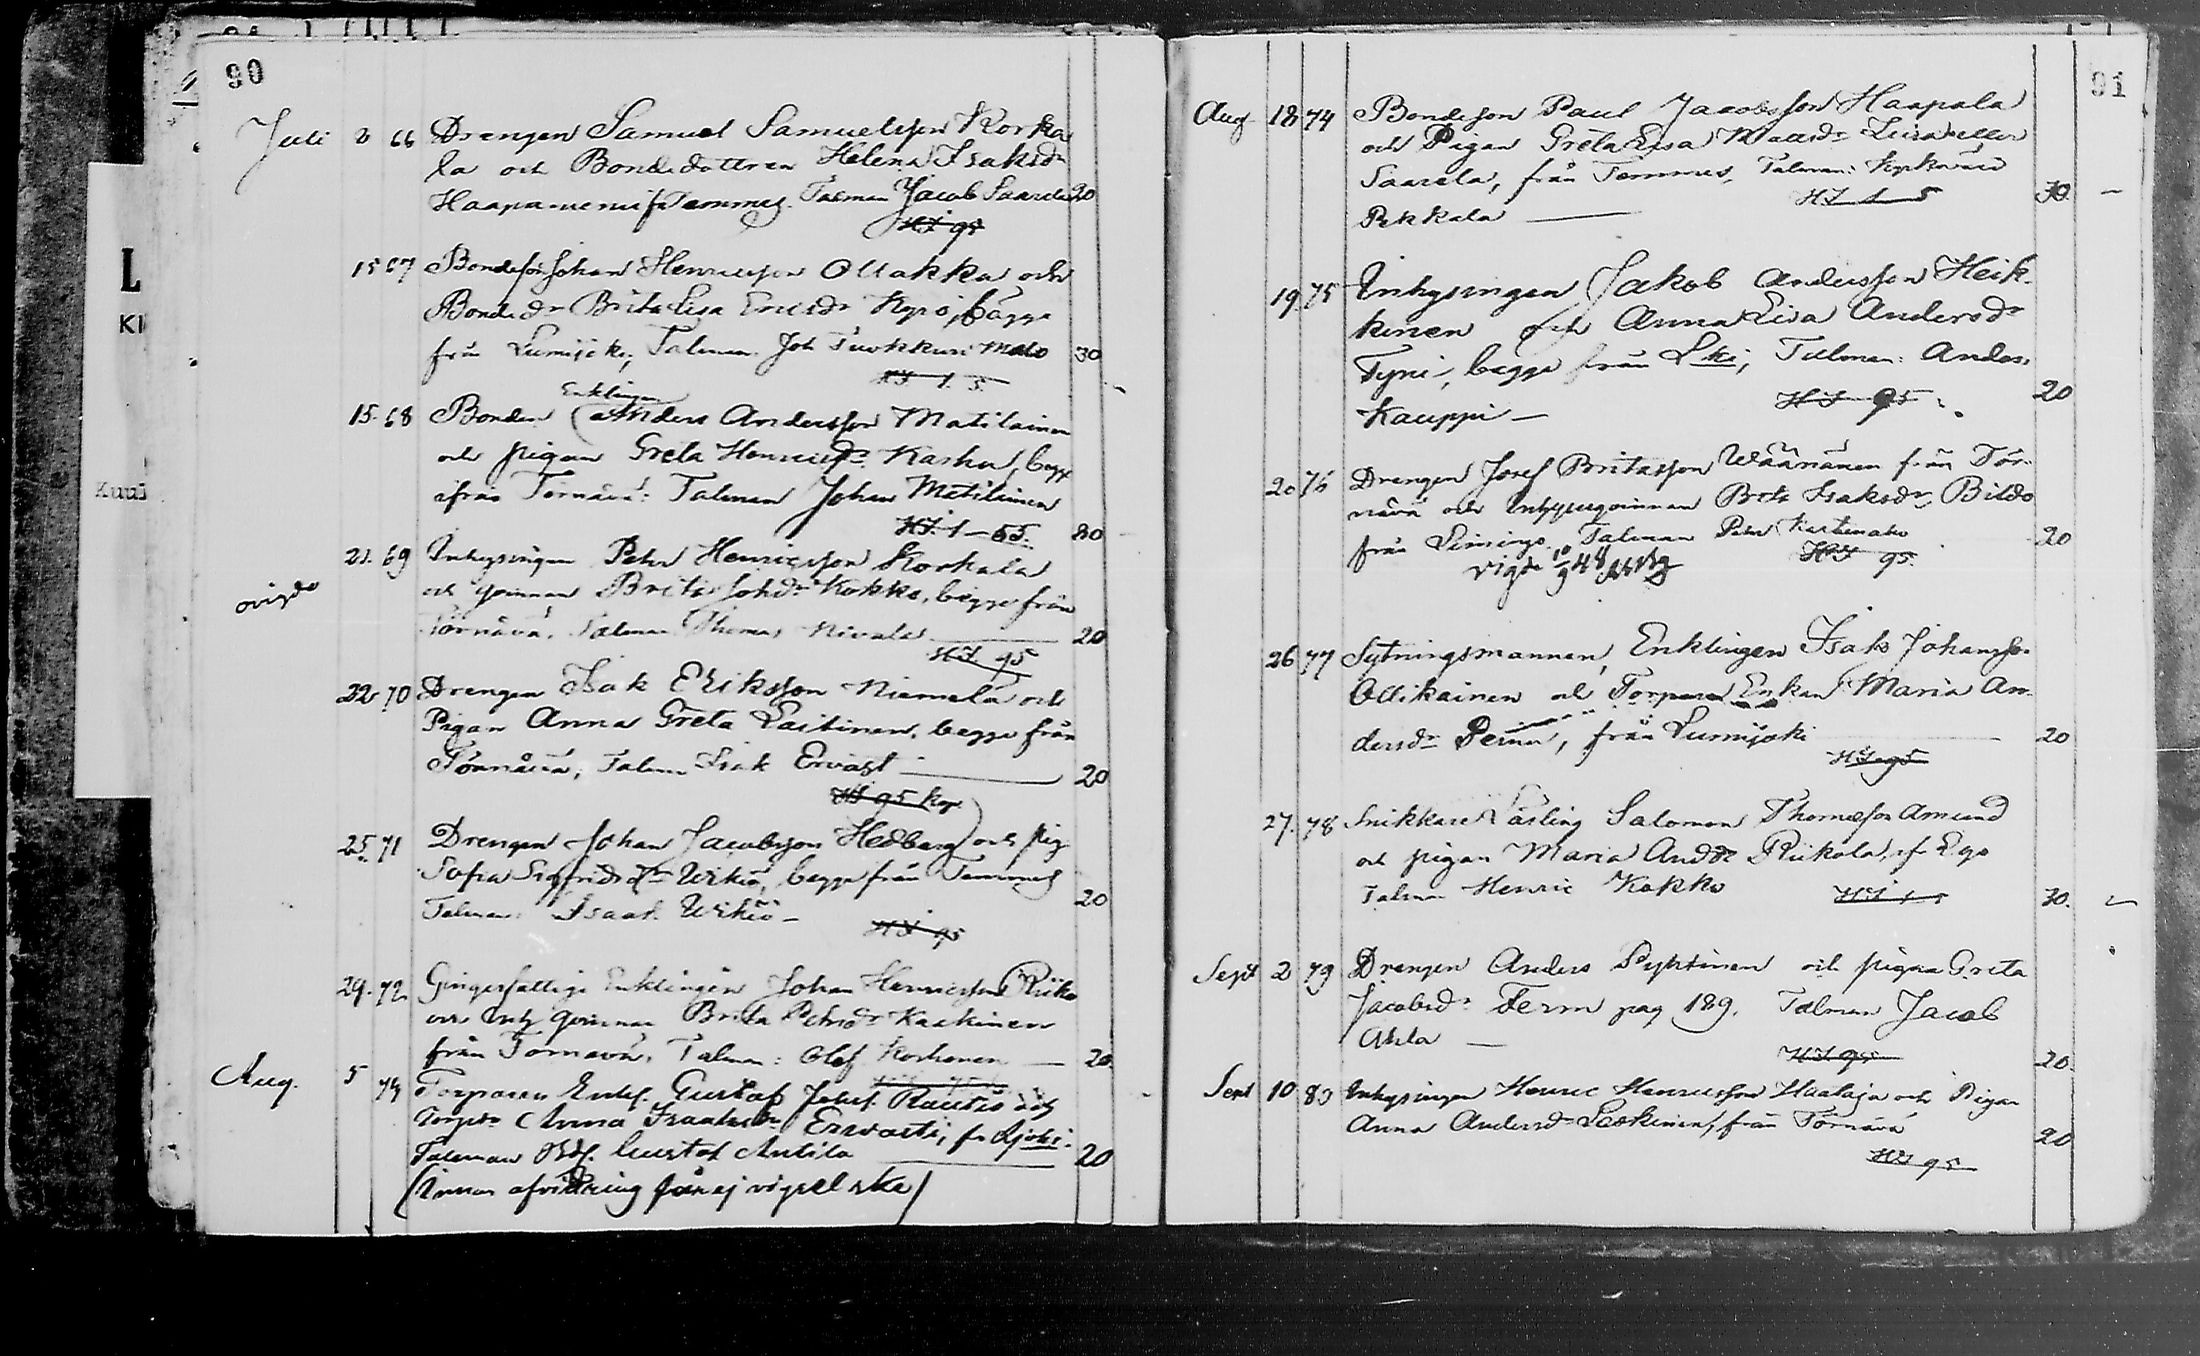 90
Juli 2 66 Drengen Samuel Samuelsson Korka
la och Bondedottren Helena Isaksdr
Haapaniemi fr Temmes. Talman Jacob Saarela 20
HS 95
15 67 Bondeson Johan Henricsson Ollakka och
Bondedr Brita Lisa Ericsdr Kyrö, bägge
från Lumijoki, Talman: Joh Tuokkuri 30
HS 1. 5.
Enklingen
15. 68 Bonden Anders Andersson Matilainen
och pigan Greta Henricsdr Karhu, begge
ifrån Tornävä: Talman Johan Matilainen
HS. 1-55. 20
21. 69 Inhysingen Petr Henricsson Korkala
ovigde och qvinnan Brita Johdr Kokko, begge från
Tornävä. Talman Thomas Nivala 20
HS. 95
22 70 Drengen Isak Eriksson Niemelä och
Pigan Anna Greta Laitinen, begge från
Tornävä, Talman Isak Ervast 20
HS 95 kop
25. 71 Drengen Johan Jacobsson Hedberg och pig
Sofia Sigfridsdr Wikiö, begge från Temmes 20
Talman: Isaak Wikiö -
HS 95
29. 72 Enklingen Johan Henricsson
och Inh qvinnan Brita Petrsdr Kaakinen
från Tornävä. Talman: Olof Korhonen 20
Aug. 5 73 Torparen Enkl. Gustaf Johns. Rautio och
Torpdr Anna Isaaksdr Ervasti, fr Ljoki.
Talman Gustaf Antila 20
(Innan afvittring får ej vigsel ske)
91
Aug 18 74 Bondeson Paul Jacobsson Haapala
och Pigan Greta Lisa Matsdr eller
Saarela, från Temmes, Talman: Kyrkovärd
HS 1 5 30. -
Pekkala
19. 75 Inhysingen Jakob Andersson Heik-
kinen och Anna Lisa Andersdr
Tyni, begge från Lki, Talman: Anders
HS 95. 20
Kauppi -
20 76 Drengen Josef Britasson Wäänänen från Tor-
nävä och Inhysesqvinnan Brita Isaksdr Bildo
från Limingo. Talman Petr 20
vigde 10/9 48 HS 95
26 77 Sytningsmannen, Enklingen Isaks Johansso
Ollikainen och Torpare Enkan Maria An-
dersdr, från Lumijoki 20
HS 95
27. 78 Snikkare Lärling Salomon Thomasson Amund
och pigan Maria Anddr Riikola,
Talman Henric Kokko HS 1 5 30.
Sept 2 79 Drengen Anders Pyhtinen och pigan Greta
Jacobsdr Ferm pag 189. Talman Jacob
Ahla -
HS 95 20.
Sept 10 80 Inhysingen Henric Henricsson Haataja och Pigan
Anna Andersdr Laskinen, från Tornävä 20
HS 95
L
Kuu